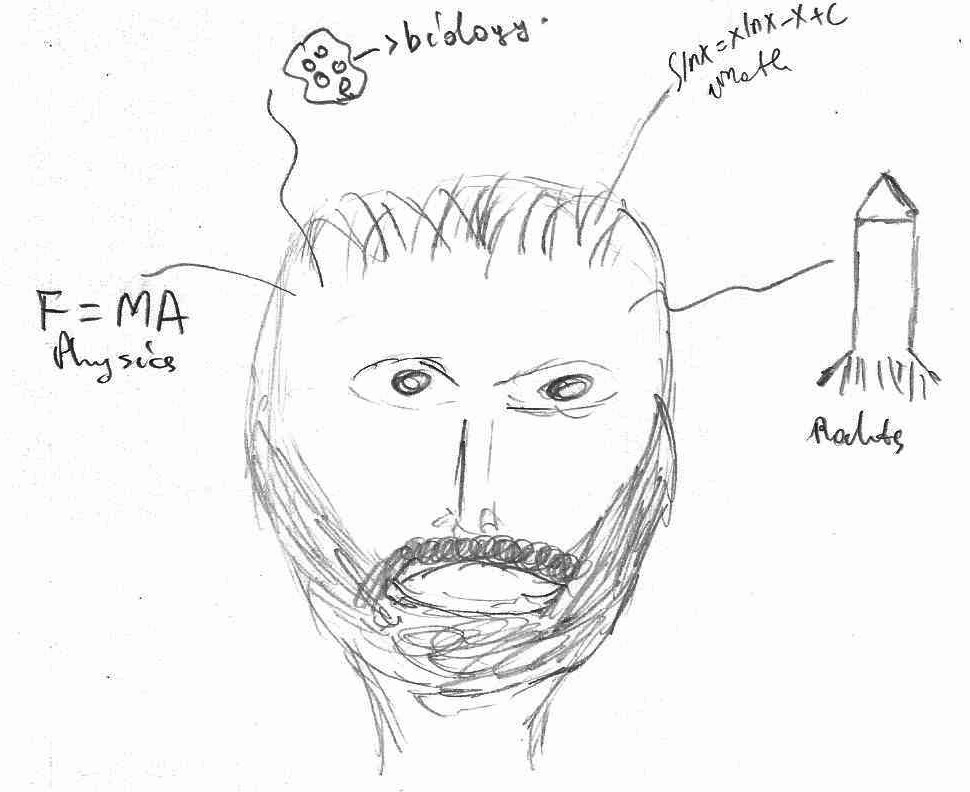 biology.
∫lnx=xlnx-x+C
math
F=MA
Physics
Rockets